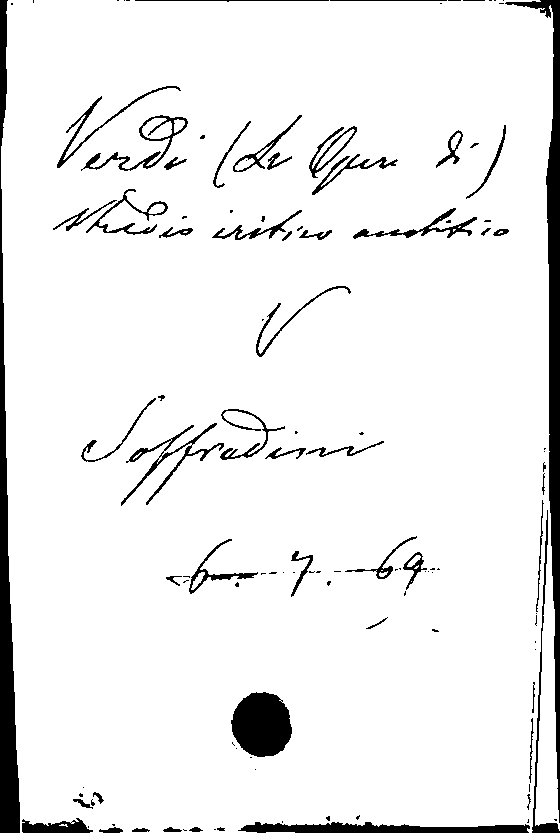 Verdi (Le Opere di)
studio critico analitico
V
Soffredini
6. 7. 69